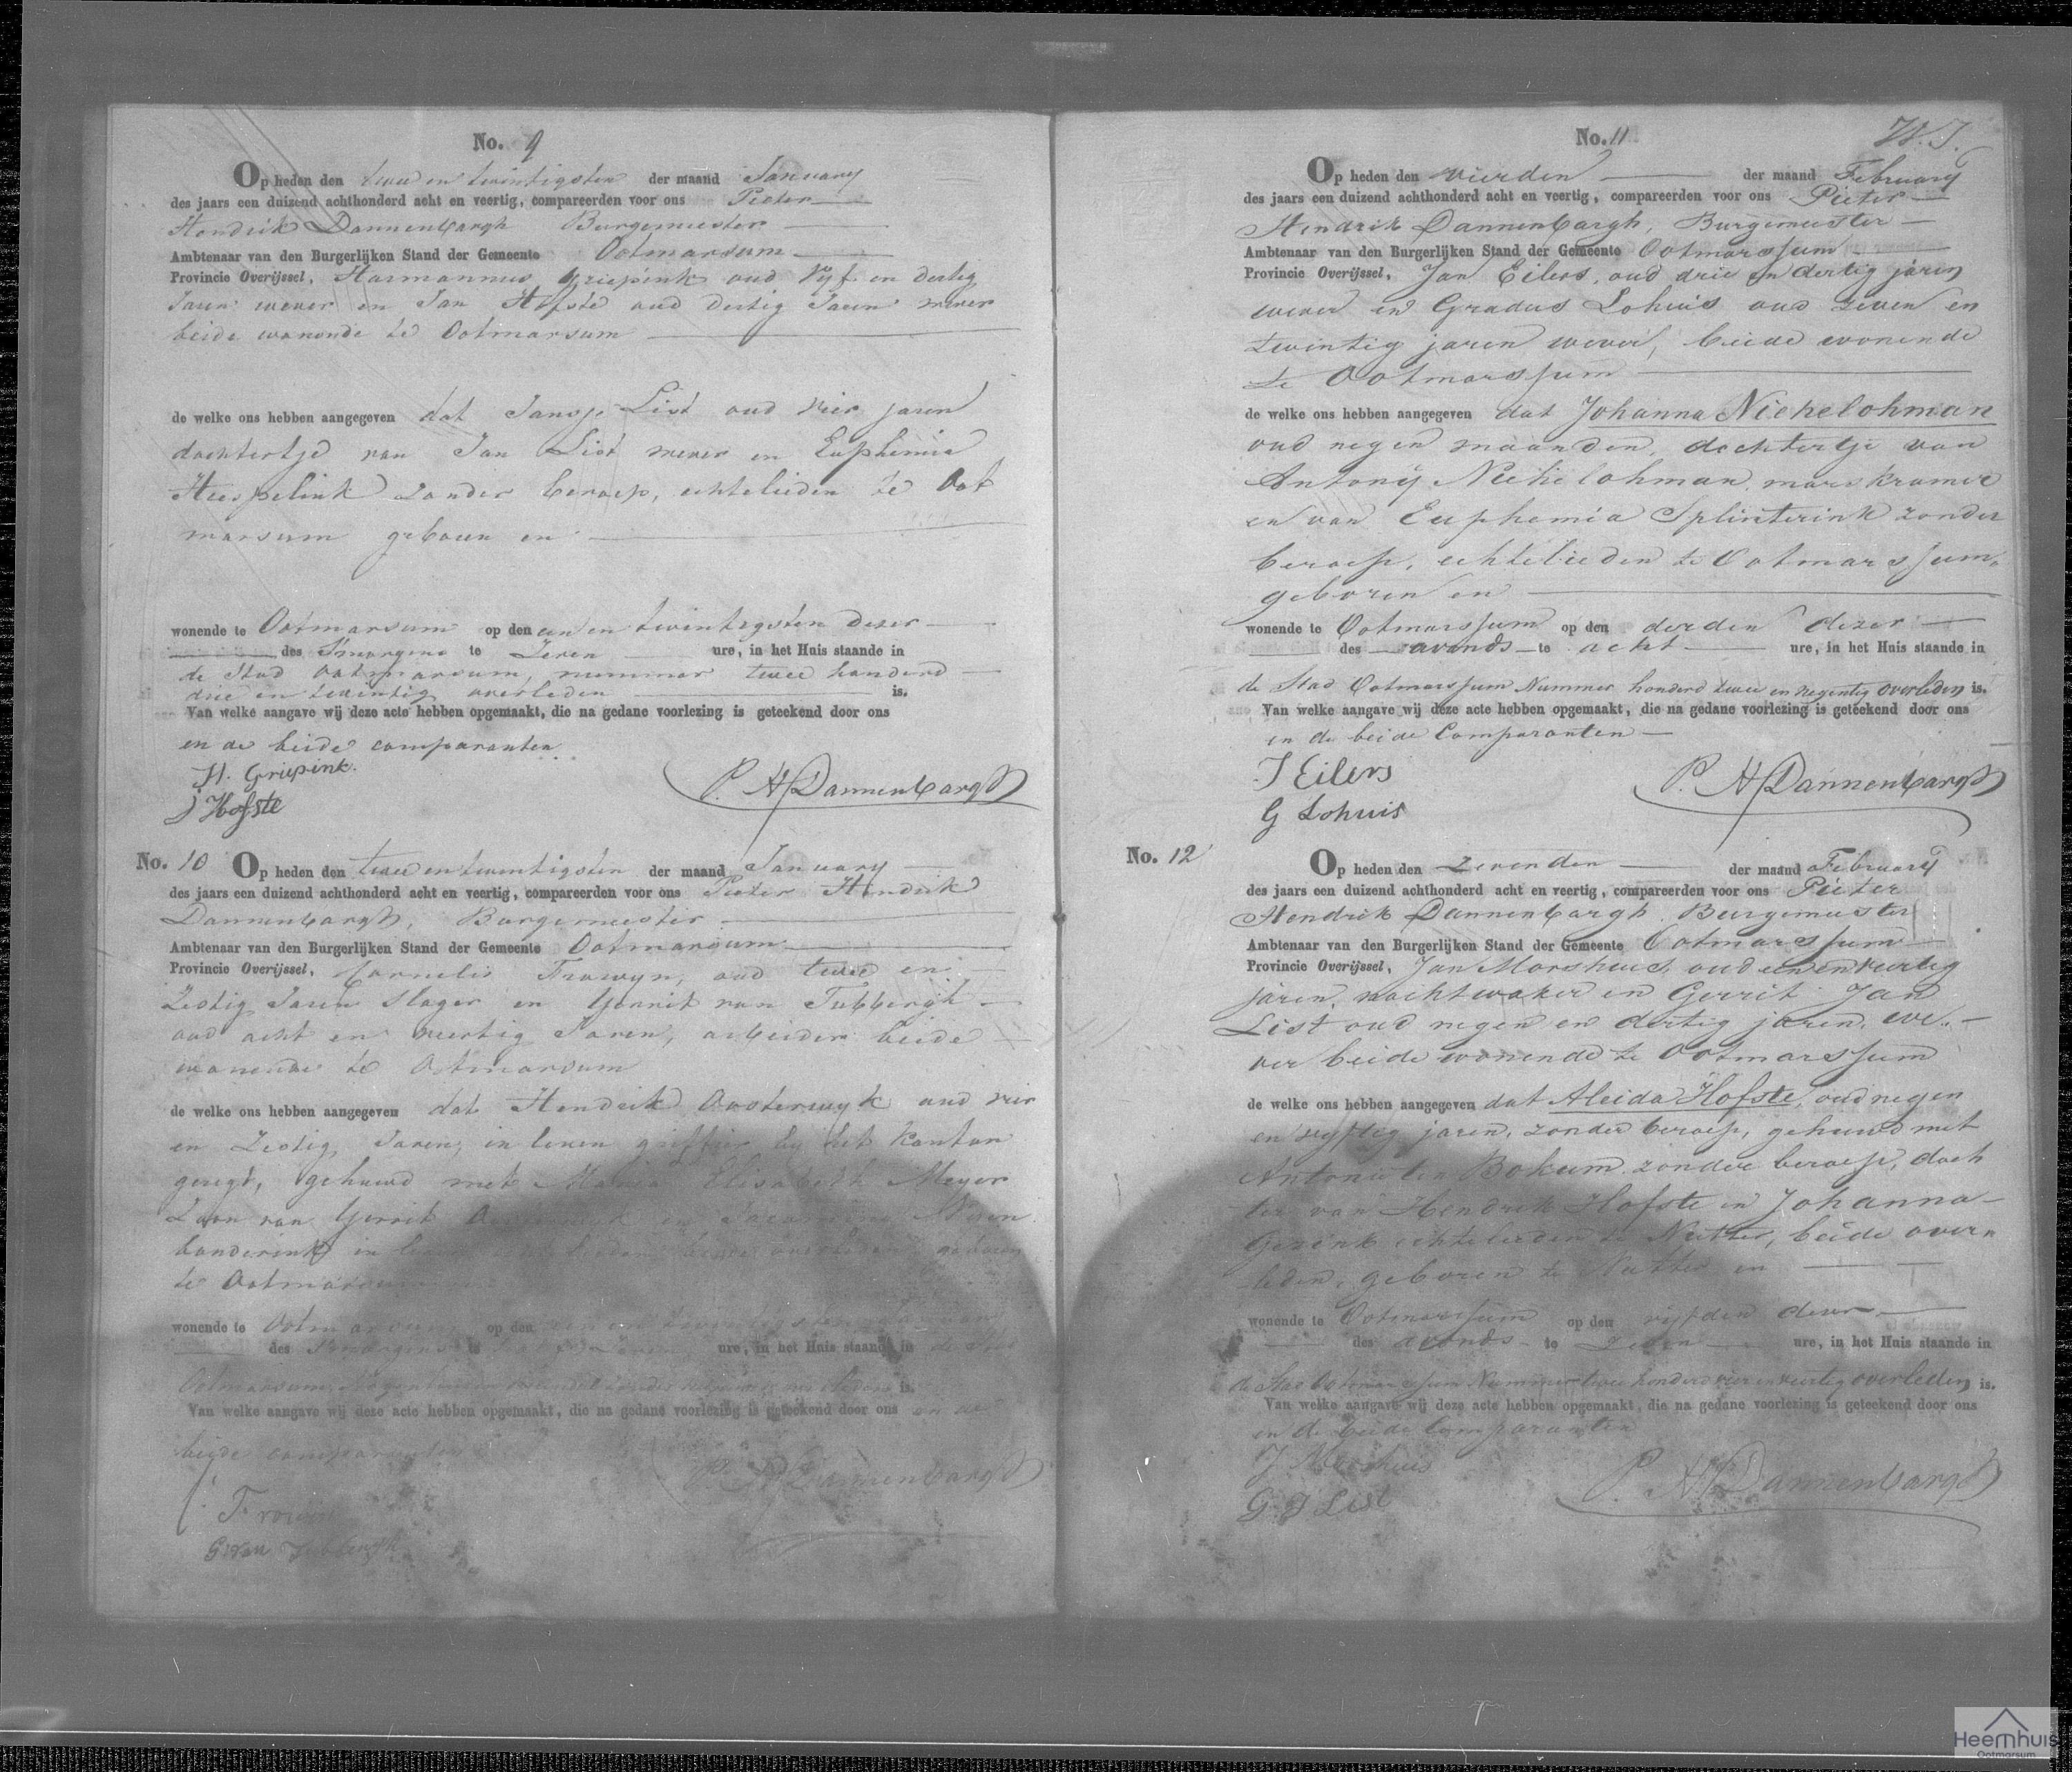 No. 9
Op heden den twee en twintigsten der maand January
des jaars een duizend achthonderd acht en veertig, compareerden voor ons Pieter
Hendrik Dannenbargh Burgemeester
Ambtenaar van den Burgerlijken Stand der Gemeente Ootmarsum
Provincie Overijssel, Harmannus Griepink oud Vyf en dertig
Jaren wever en Jan Hofste oud Dertig Jaren wever
beide wonende te Ootmarsum
de welke ons hebben aangegeven dat Jansje List oud vier jaren
dochtertje van Jan List wever en Euphemia
Heespelink zonder beroep, echtelieden te Oot
marsum geboren en
wonende te Ootmarsum op den een en twintigsten dezer
des Smorgens te Zeven ure, in het Huis staande in
de Stad Ootmarsum, nummer twee honderd
drie en twintig overleden is.
Van welke aangave wij deze acte hebben opgemaakt, die na gedane voorlezing is geteekend door ons
en de beide comparanten
H. Griepink.
J Hofste
P. H Dannenbargh
No. 10 Op heden den twee en twintigsten der maand January
des jaars een duizend achthonderd acht en veertig, compareerden voor ons Pieter Hendrik
Dannenbargh, Burgemeester
Ambtenaar van den Burgerlijken Stand der Gemeente Ootmarsum
Provincie Overijssel, Cornelis Frowyn, oud twee en
Zestig Jaren Slager en Gerrit van Tubbergh
oud acht en veertig Jaren, arbeider beide
wonende te Ootmarsum
de welke ons hebben aangegeven dat Hendrik Oosterwyk oud vier
en Zestig Jaren, in leven griffier by het kanton
geregt, gehuwd met Maria Elisabeth Meyer
Zoon van Gerrit
banderink in geboren
te Ootmarsum
wonende te Ootmarsum op den
des Smorgens ure, in het Huis staande in de Stad
Ootmarsum is.
Van welke aangave wij deze acte hebben opgemaakt, die na gedane voorlezing is geteekend door ons en de
beide comparanten
Frowyn
G van Tubbergh
P. H Dannenbargh
No. 11 W.J.
Op heden den vierden der maand February
des jaars een duizend achthonderd acht en veertig, compareerden voor ons Pieter
Hendrik Dannenbargh, Burgemeester
Ambtenaar van den Burgerlijken Stand der Gemeente Ootmarssum
Provincie Overijssel, Jan Eilers, oud drie en dertig jaren
wever en Gradus Lohuis oud zeven en
twintig jaren wever, beide wonende
te Ootmarssum
de welke ons hebben aangegeven dat Johanna Niehelohman
oud negen maanden, dochtertje van
Antony Niehelohman, marskramer
en van Euphemia Splinterink zonder
beroep, echtelieden te Ootmarssum,
geboren en
wonende te Ootmarssum op den derden dezer
des avonds te acht ure, in het Huis staande in
de Stad Ootmarssum Nummer honderd twee en negentig overleden is.
Van welke aangave wij deze acte hebben opgemaakt, die na gedane voorlezing is geteekend door ons
en de beide Comparanten
J Eilers
G Lohuis
P. H Dannenbargh
No. 12 Op heden den zevenden der maand February
des jaars een duizend achthonderd acht en veertig, compareerden voor ons Pieter
Hendrik Dannenbargh, Burgemeester
Ambtenaar van den Burgerlijken Stand der Gemeente Ootmarssum
Provincie Overijssel, Jan Morshuis, oud een en veertig
jaren, nachtwaker en Gerrit Jan
List oud negen en dertig jaren, we
ver beide wonende te Ootmarssum
de welke ons hebben aangegeven dat Aleida Hofste, oud negen
en vyftig jaren, zonder beroep, gehuwd met
Antonie ten Bokum zonder beroep, doch
ter van Hendrik Hofste en Johanna
Gezink echtelieden te Nutter, beide over
leden, geboren te Nutter en
wonende te Ootmarssum op den vijfden dezer
des avonds te zeven ure, in het Huis staande in
de Stad Ootmarssum Nummer twee honderd vier en veertig overleden is.
Van welke aangave wij deze acte hebben opgemaakt, die na gedane voorlezing is geteekend door ons
en de beide Comparanten
J Morshuis
G J List
P. H Dannenbargh
Heemhuis
Ootmarsum